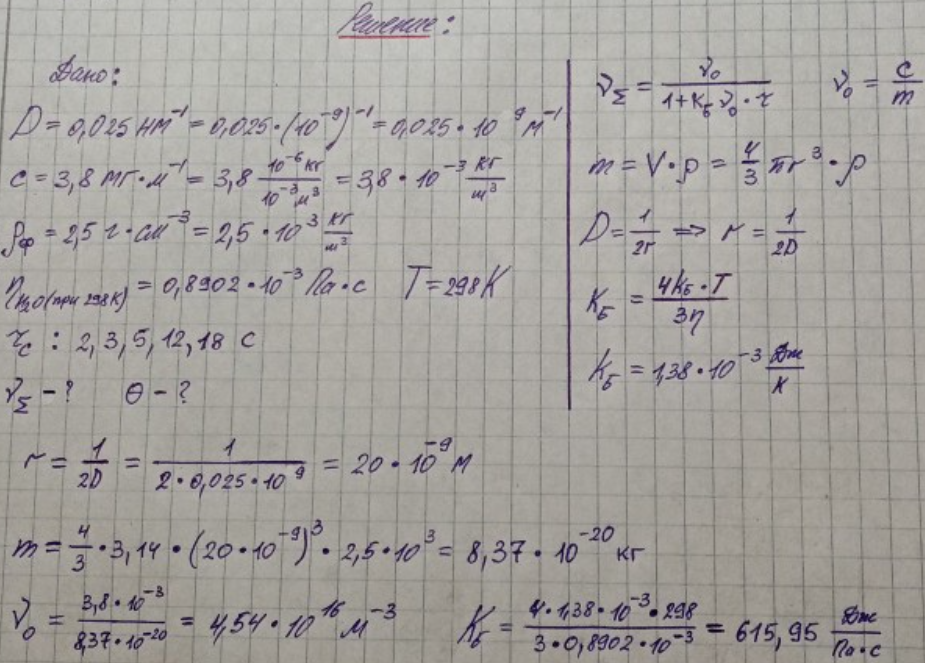 Решение:
Дано:
D = 0,025 нм⁻¹ = 0,025·(10⁻⁹)⁻¹ = 0,025·10⁹ м⁻¹
c = 3,8 мг·м⁻¹ = 3,8 10⁻⁶кг/10⁻³м³ = 3,8·10⁻³ кг/м³
ρф = 2,5 г·см⁻³ = 2,5·10³ кг/м³
ηH₂O(при 298К) = 0,8902·10⁻³ Па·с T = 298К
τc : 2, 3, 5, 12, 18 с
ν_Σ - ? θ - ?
ν_Σ = ν₀/(1+K_Б ν₀·τ) ν₀ = c/m
m = V·ρ = 4/3 πr³·ρ
D = 1/2r ⟹ r = 1/2D
K_Б = 4k_Б·T/3η
k_Б = 1,38·10⁻³ Дж/К
r = 1/2D = 1/(2·0,025·10⁹) = 20·10⁻⁹ м
m = 4/3·3,14·(20·10⁻⁹)³·2,5·10³ = 8,37·10⁻²⁰ кг
ν₀ = 3,8·10⁻³/8,37·10⁻²⁰ = 4,54·10¹⁶ м⁻³ K_Б = 4·1,38·10⁻³·298/3·0,8902·10⁻³ = 615,95 Дж/Па·с